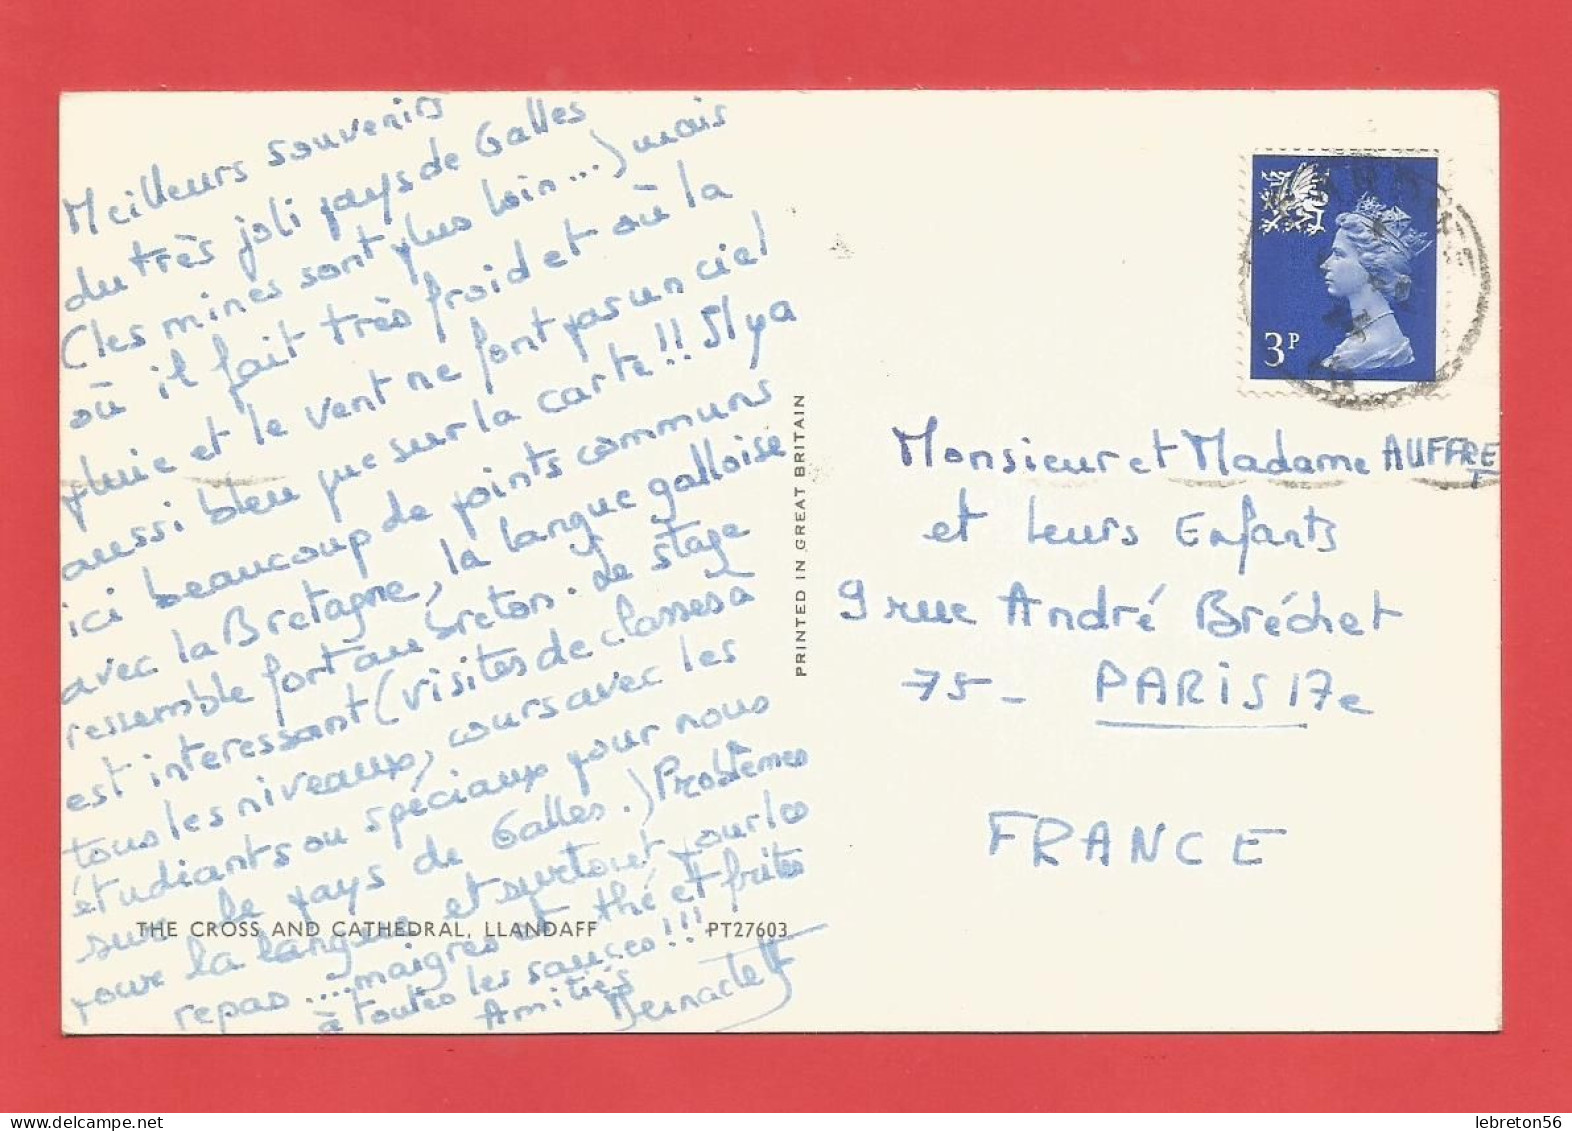 Meilleurs souvenirs
du très joli pays de Galles
(les mines sont plus loin...) mais
où il fait très froid et où la
pluie et le vent ne font pas un ciel
aussi bleu que sur la carte!! Il y a
ici beaucoup de points communs
avec la Bretagne, la langue galloise
ressemble fort au breton. Le stage
est interessant (visites de classes à
tous les niveaux, cours avec les
étudiants ou spéciaux pour nous
sur le pays de Galles.) Problèmes
pour la langue et surtout pour les
repas.... maigres et thé et frites
à toutes les sauces!!!
Amitiés Bernadette
THE CROSS AND CATHEDRAL, LLANDAFF PT27603
PRINTED IN GREAT BRITAIN
3P
Monsieur et Madame AUFFRET
et leurs Enfants
9 rue André Bréchet
75- PARIS 17e
FRANCE
lebreton56